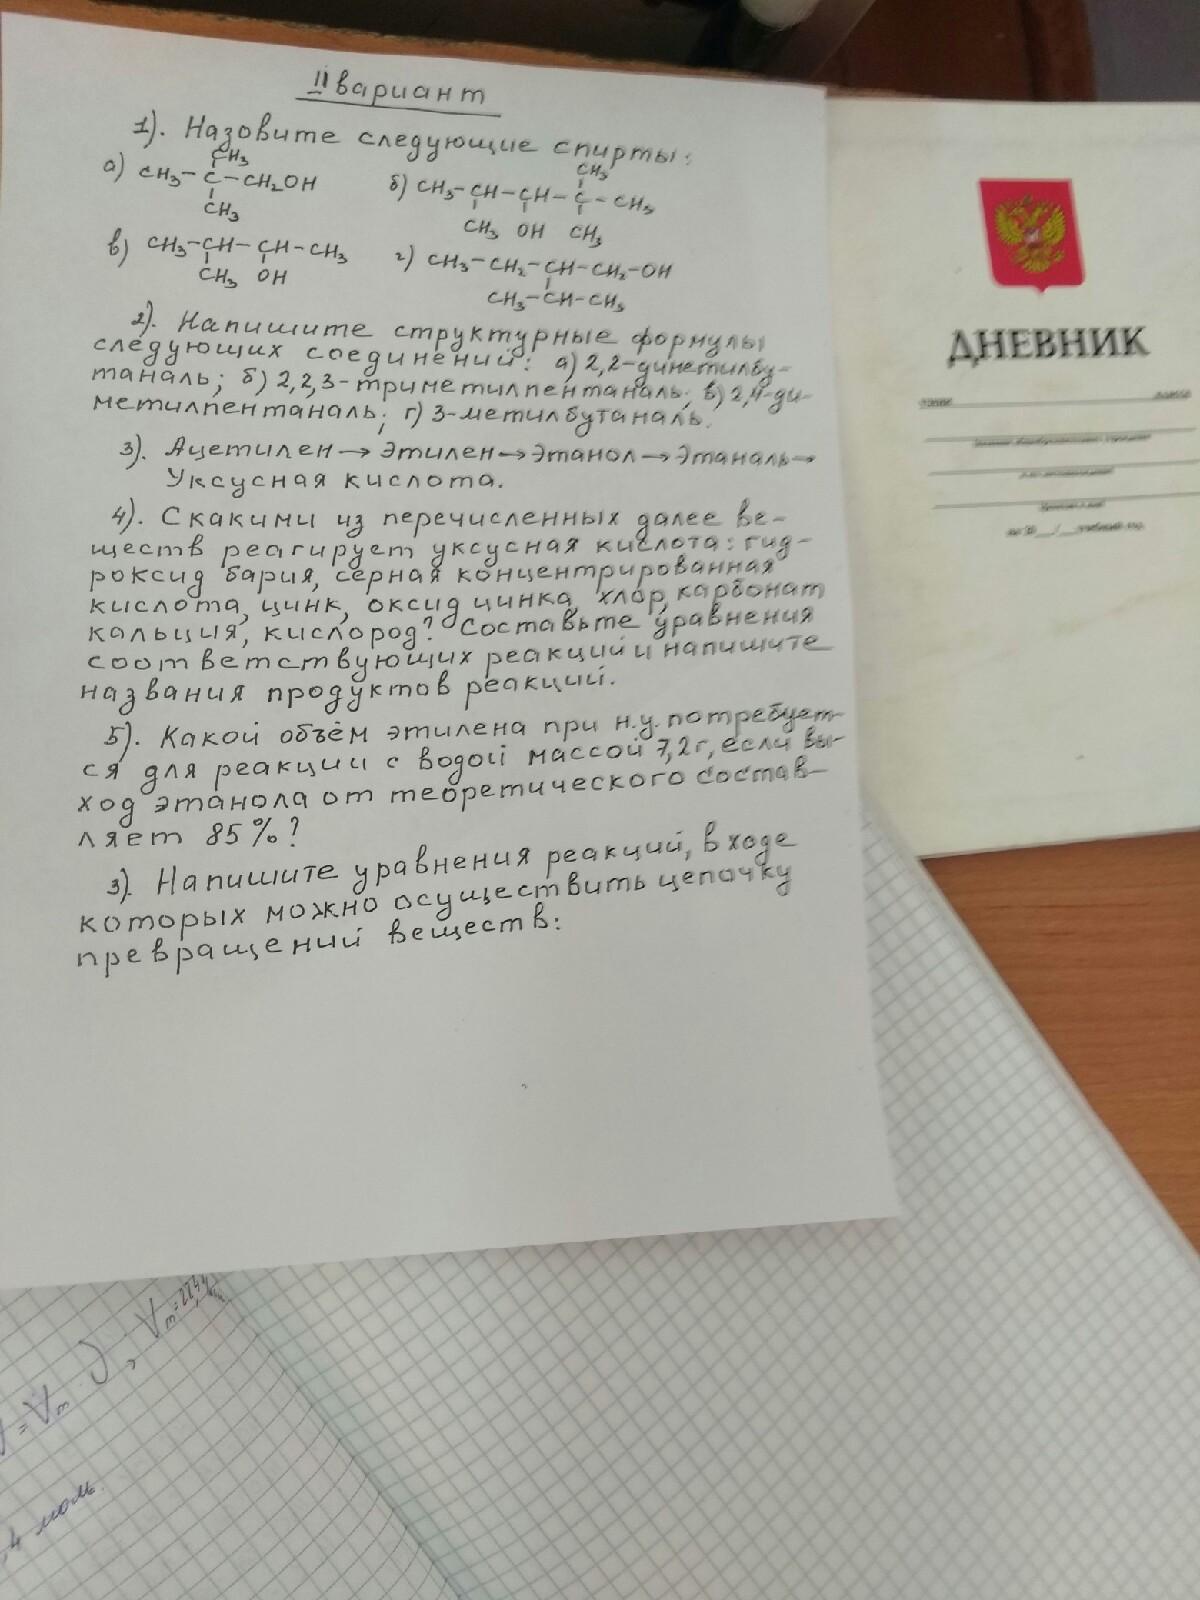 II вариант
1). Назовите следующие спирты:
CH₃ CH₃
а) CH₃–C–CH₂OH б) CH₃–CH–CH–C–CH₃
CH₃ CH₃ OH CH₃
в) CH₃–CH–CH–CH₃ г) CH₃–CH₂–CH–CH₂–OH
CH₃ OH CH₃–CH–CH₃
2). Напишите структурные формулы
следующих соединений: а) 2,2-диметилбу-
таналь; б) 2,2,3-триметилпентаналь; в) 2,4-ди-
метилпентаналь; г) 3-метилбутаналь.
3). Ацетилен→этилен→этанол→этаналь→
Уксусная кислота.
4). С какими из перечисленных далее ве-
ществ реагирует уксусная кислота: гид-
роксид бария, серная концентрированная
кислота, цинк, оксид цинка, хлор, карбонат
кальция, кислород? Составьте уравнения
соответствующих реакций и напишите
названия продуктов реакций.
5). Какой объём этилена при н.у. потребует-
ся для реакции с водой массой 7,2 г, если вы-
ход этанола от теоретического состав-
ляет 85%?
3). Напишите уравнения реакций, в ходе
которых можно осуществить цепочку
превращений веществ:
ДНЕВНИК
= Vm · ϑ, Vm = 22,4
,4 моль.